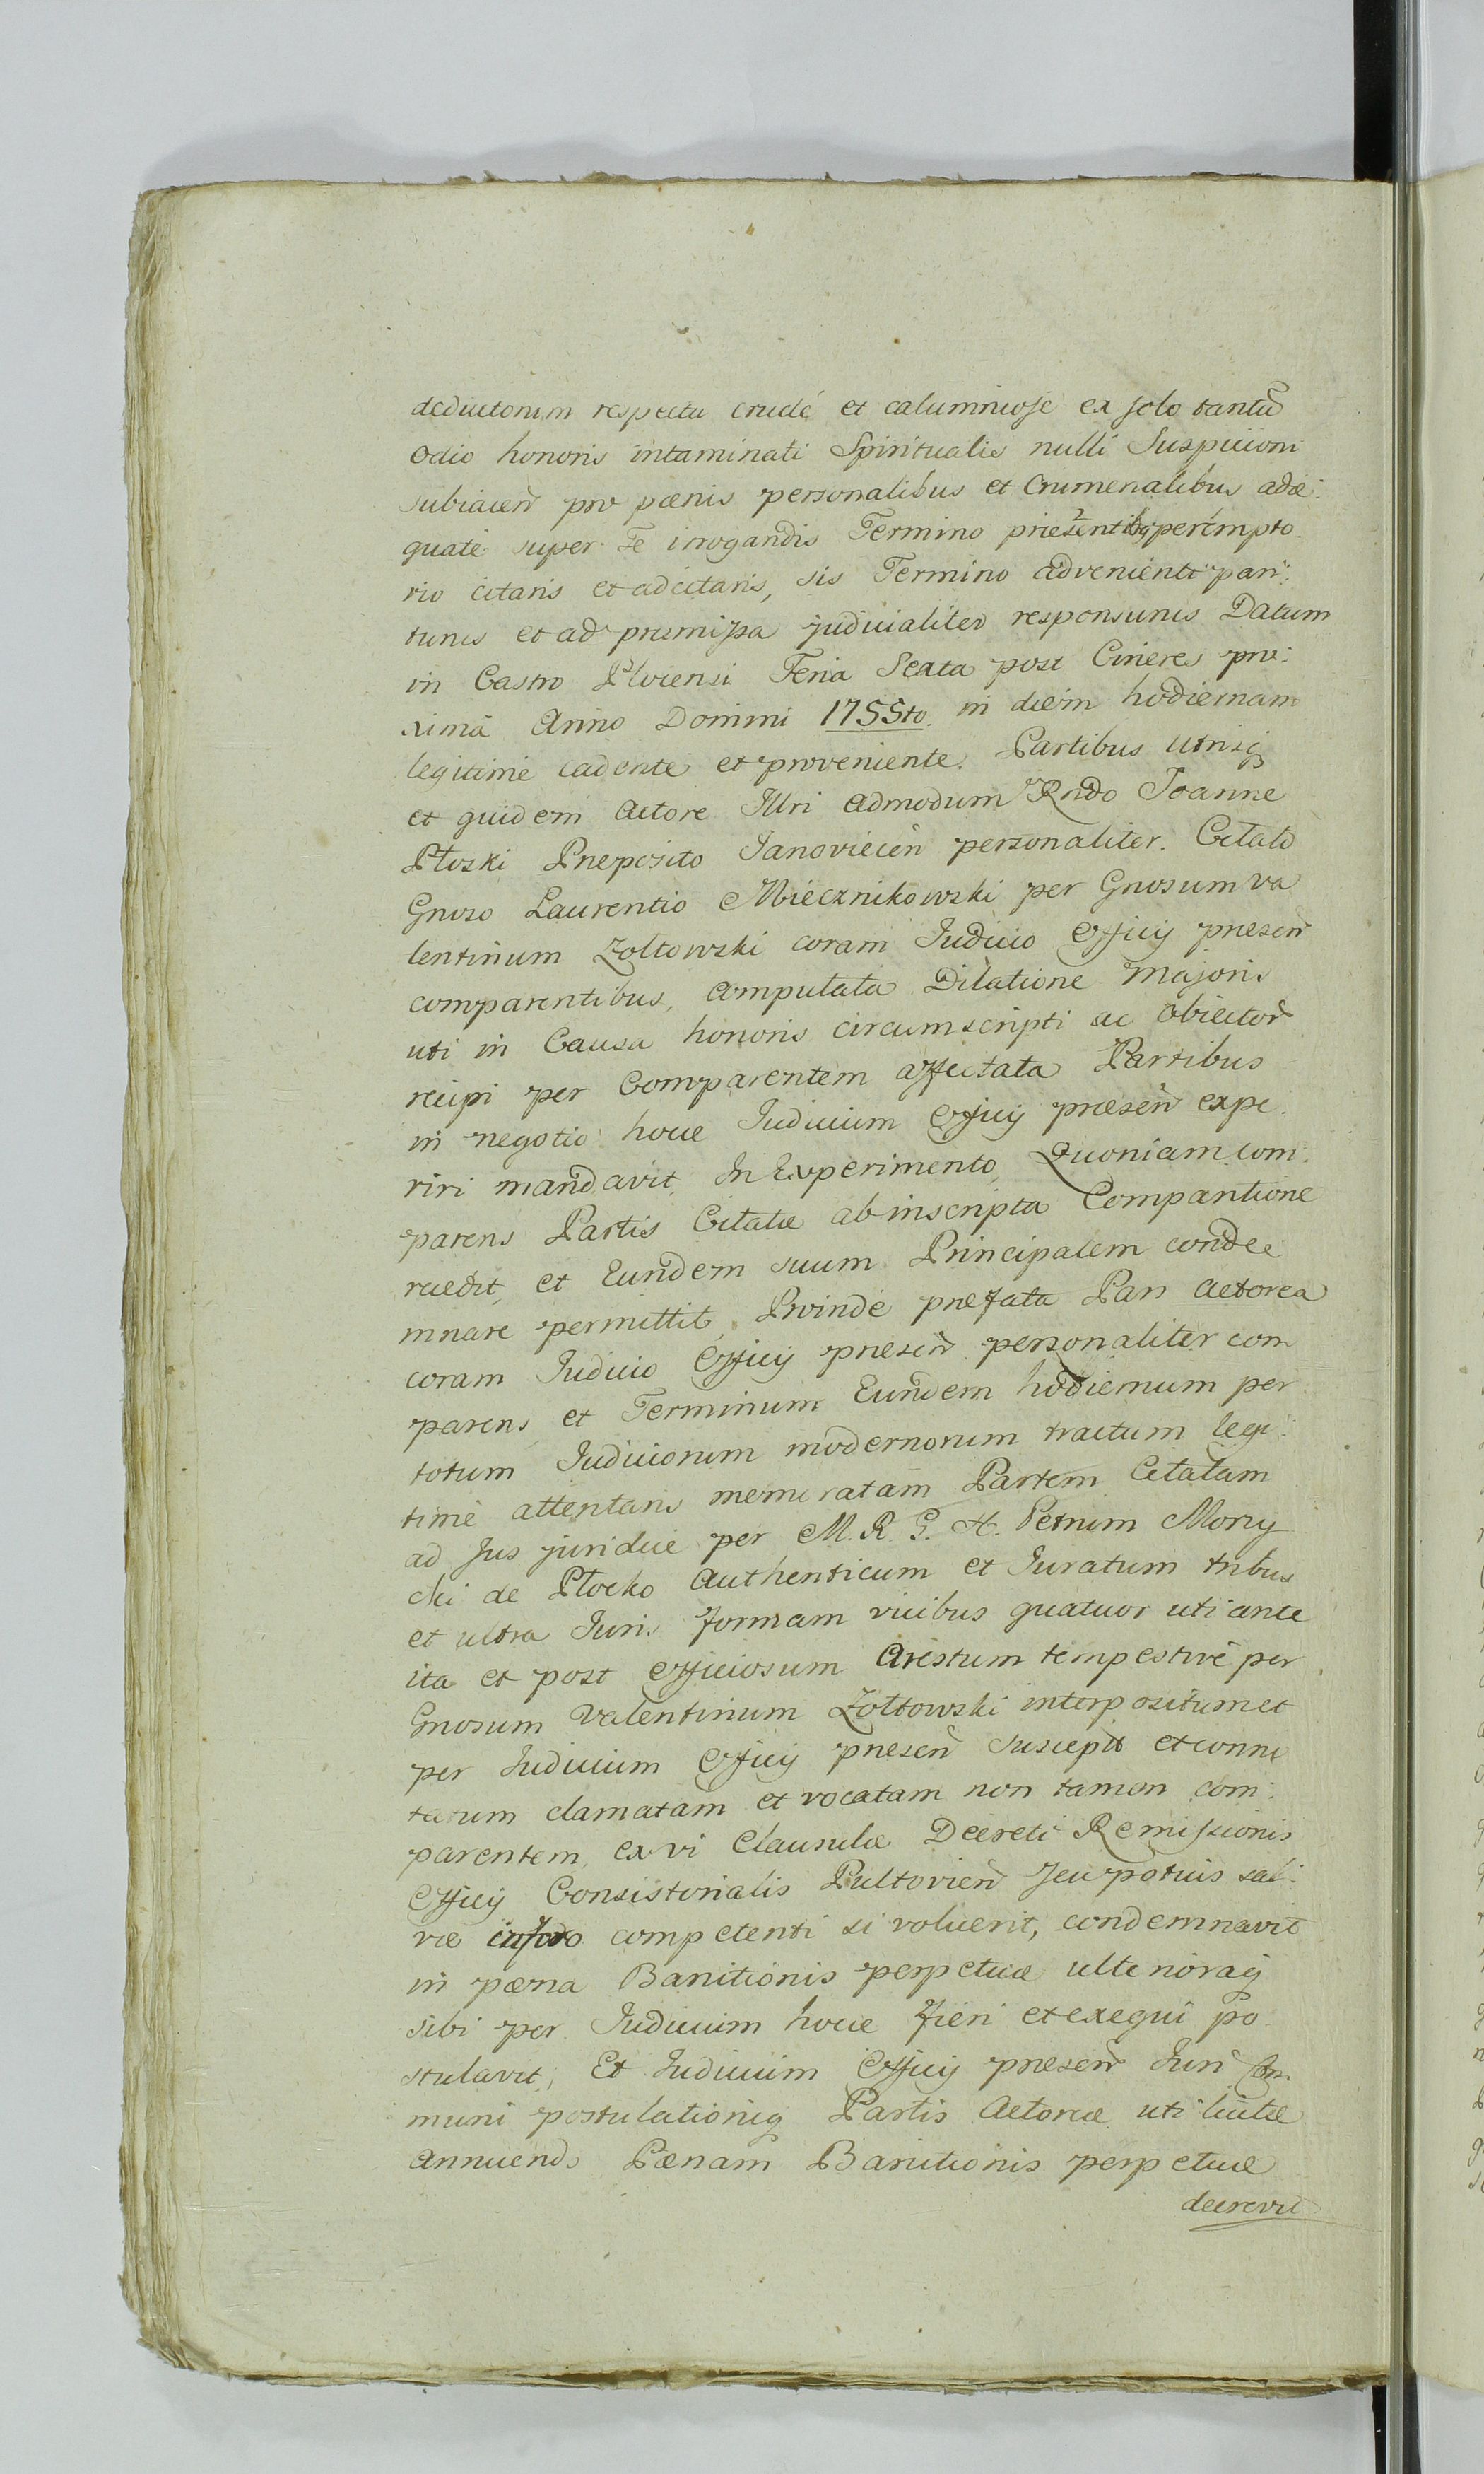 deductorum respectu crudé et calumniose ex solo tantũ
odio honoris intaminati Spiritualis nulli Suspicioni
subiacen̄ pro pœnis personalibus et Crumenalibus adæ:
quaté super Te irrogandis Termino præsentibq perempto.
rio citaris et adcitaris, sis Termino advenienti pari:
turus et ad præmissa judicialiter responsurus Datum
in Castro Plocensi Feria Sexta post Cineres pro:
xima Anno Domini 1755to. in diem hodiernam
legitimé cadente et proveniente. Partibus utrisq
et quidem Actore Illri Admodum Rndo Joanne
Płoski Præposito Janoviecen̄ personaliter. Citato
Gnoso Laurentio Miecznikowski per Gnosum va
lentinum Zołtowski coram Judicio Officij præsen̄
comparentibus, computata Dilatione Majoris
uti in Causa honoris circumscripti ac obiector̄
recipi per Comparentem affectata Partibus
in negotio hocce Judicium Officij præsen̄ expe.
riri mandavit, In Experimento, Quoniam com.
parens Partis Citatæ ab inscripta Comparitione
recedit, et Eundem suum Principalem conde
mnare permittit, Proinde præfata Pars Actorea
coram Judicio Officij præsen̄ personaliter com
parens, et Terminum Eundem hodiernum per
totum Judiciorum modernorum tractum legi:
timé attentans memoratam Partem Citatam
ad Jus juridicé per M. R. G. H. Petrum Morzy
cki de Płocko Authenticum et Juratum tribus
et ultra Juris formam vicibus quatuor uti ante
ita et post Officiosum Arestum tempestivé per
Gnosum Valentinum Zołtowski interpositum et
per Judicium Officij præsen̄ suscept̄ et conni
tatum clamatam et vocatam non tamen com:
parentem, ex vi Clausulæ Decreti Remissionis
Officij Consistorialis Pultovien̄ seu potius sal:
væ in foro competenti si voluerit, condemnavit
in pœna Banitionis perpetuæ ulteriorāq
sibi per Judicium hocce fieri et exequi po.
stulavit, Et Judicium Officij præsen̄ Juri Com.
muni postulationiq Partis Actoreæ uti licitæ
annuendo Pœnam Banitionis perpetuæ
decrevit